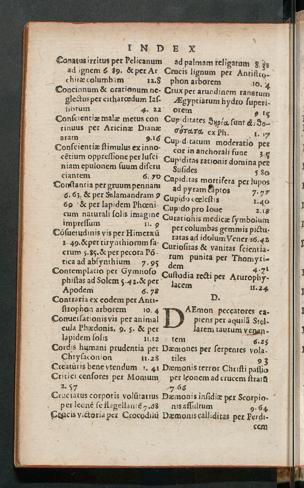 INDEX
Conatus irritus per Pelicanum
ad ignem 6 89. & per Ar
chitæ columbam 12.8
Concionum & orationum ne-
glectus per citharœdum Ias-
sitorum 4. 22
Conscientiæ malæ metus con
tinuus per Aricinæ Dianæ
aram 9.16
Conscientiæ stimulus ex inno-
cētium oppressione per lusci
niam epulonem suum discru
ciantem 6. 70
Constantia per gruum pennam
6. 63. & per Salamandram 9
60 & per lapidem Phœni-
cum naturali solis imagine
impressum 11. 9
Cōsuetudinis vis per Himeræū
1 49. & per tirynthiorum sa-
crum 5.85. & per pecora Pō-
tica ad absynthium 7.95
Contemplatio per Gymnoso
phistas ad Solem 5.42. & per
Apodem 6.78
Contraria ex eodem per Anti-
strophon arborem 10.4
Conuersationis vis per animal
cula Phædonis. 9. 5. & per
lapidem solis 11.12
Cordis humani prudentia per
Chrysaconion 11.28
Creaturis bene vtendum 1. 41
Critici censores per Momum
2. 57
Cruciatus corporis voluntarius
per leonē se flagellantē 7.68
Crucis victoria per Crocodilū
ad palmam religatum 8.32
Crucis lignum per Antistro-
phon arborem 10. 4
Crux per arundinem ranatum
Ægyptiarum hydro superi-
orem 9 15
Cupiditates
ex Ph. 1. 17
Cupiditatum moderatio per
cor in anchorali fune 3.5
Cupiditas rationis domina per
Susides 5 80
Cupiditas mortifera per lupos
ad pyram captos 7.77
Cupido cœlestis 1.40
Cupido pro Ioue 2.18
Curationis medicæ symbolum
per columbas gemmis pictu-
ratas ad idolum Vener 16.42
Curiositas & vanitas scientia-
rum punita per Thomyti-
dem 4.71
Custodia recti per Aturophy-
lacem 11.24
D.
DAEmon peccatores ca-
piens per aquilā Stel-
larem taurum venan-
tem 6.25
Dæmones per serpentes vola-
tiles 9 3
Dæmonis terror Christi passio
per leonem ad crucem stratū
7.66
Dæmonis insidiæ per Scorpio-
nis assultum 9.64
Dæmonis calliditas per Perdi-
cem